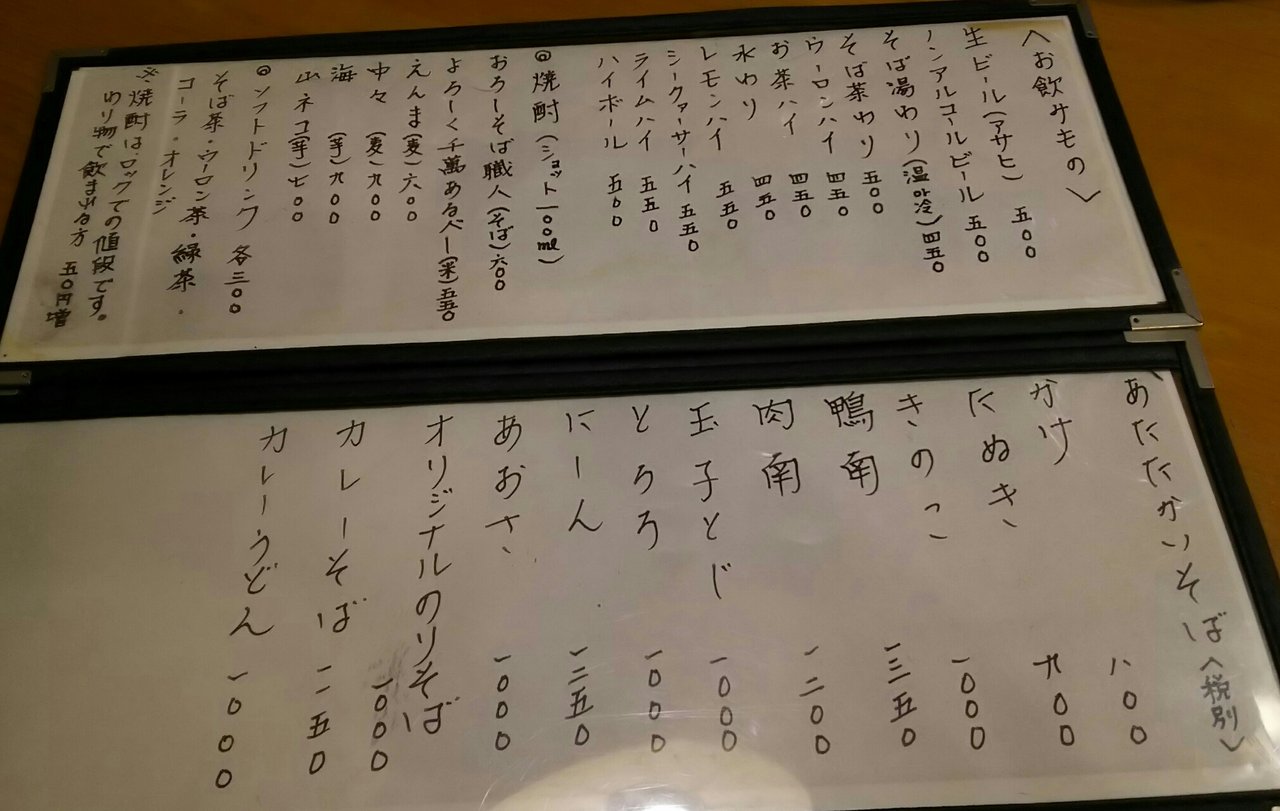 〈お飲みもの〉
生ビール(アサヒ) 五〇〇
ノンアルコールビール 五〇〇
そば湯わり(温or冷)四五〇
そば茶わり 五〇〇
ウーロンハイ 四五〇
お茶ハイ 四五〇
水わり 四五〇
レモンハイ 五五〇
シークァーサーハイ 五五〇
ライムハイ 五五〇
ハイボール 五〇〇
◎焼酎(ショット一〇〇ml)
おろしそば職人(そば)六〇〇
よろしく千萬あるべし(米)五五〇
えんま(麦)六〇〇
中々(麦)九〇〇
海(芋)九〇〇
山ネコ(芋)七〇〇
◎ソフトドリンク 各三〇〇
そば茶・ウーロン茶・緑茶・
コーラ・オレンジ
※焼酎はロックでの値段です。
わり物で飲まれる方 五〇円増
あたたかいそば〈税別〉
かけ 八〇〇
たぬき 九〇〇
きのこ 一〇〇〇
鴨南 一三五〇
肉南 一二〇〇
玉子とじ 一〇〇〇
とろろ 一〇〇〇
にしん 一二五〇
あおさ 一〇〇〇
オリジナルのりそば 一〇〇〇
カレーそば 一一五〇
カレーうどん 一〇〇〇